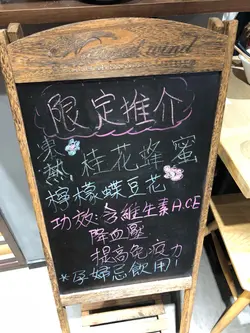 wind
限定推介
凍
熱 桂花蜂蜜
檸檬蝶豆花
功效:含維生素A.C.E
降血壓
提高免疫力
*孕婦忌飲用!